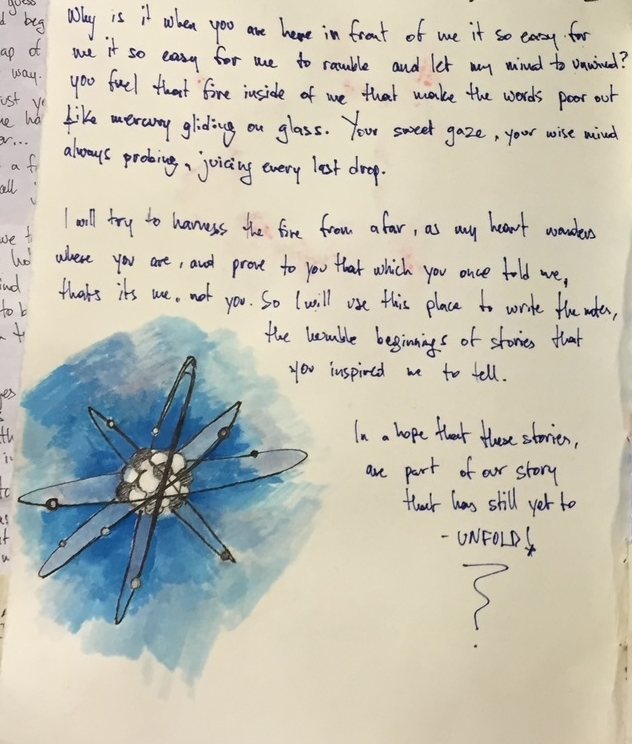 guess
Why is it when you are here in front of me it so easy for
me it so easy for me to ramble and let my mind to unwind?
you fuel that fire inside of me that make the words poor out
Like mercury gliding on glass. Your sweet gaze, your wise mind
always probing, juicing every last drop.
I will try to harness the fire from afar, as my heart wanders
where you are, and prove to you that which you once told me,
thats its me, not you. So I will use this place to write the notes,
the humble beginnings of stories that
you inspired me to tell.
In a hope that these stories,
are part of our story
that has still yet to
- UNFOLD!
?